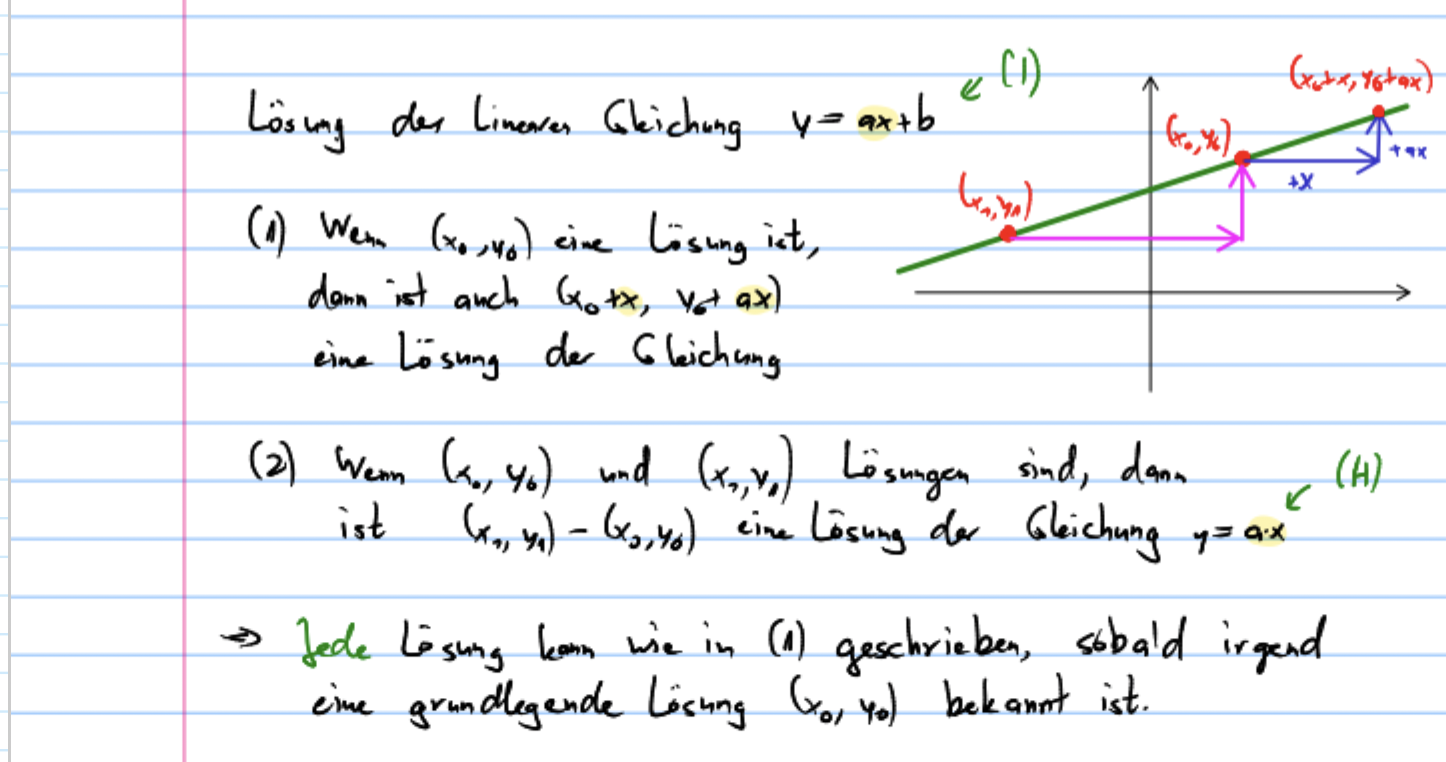 Lösung der Linearen Gleichung y = ax+b
(I)
(1) Wenn (x₀, y₀) eine Lösung ist,
dann ist auch (x₀+x, y₀+ax)
eine Lösung der Gleichung
(x₀+x, y₀+ax)
(x₀, y₀)
+ax
+x
(x₁, y₁)
(2) Wenn (x₀, y₀) und (x₁, y₁) Lösungen sind, dann
ist (x₁, y₁) – (x₀, y₀) eine Lösung der Gleichung y = a·x
(H)
⇒ Jede Lösung kann wie in (1) geschrieben, sobald irgend
eine grundlegende Lösung (x₀, y₀) bekannt ist.